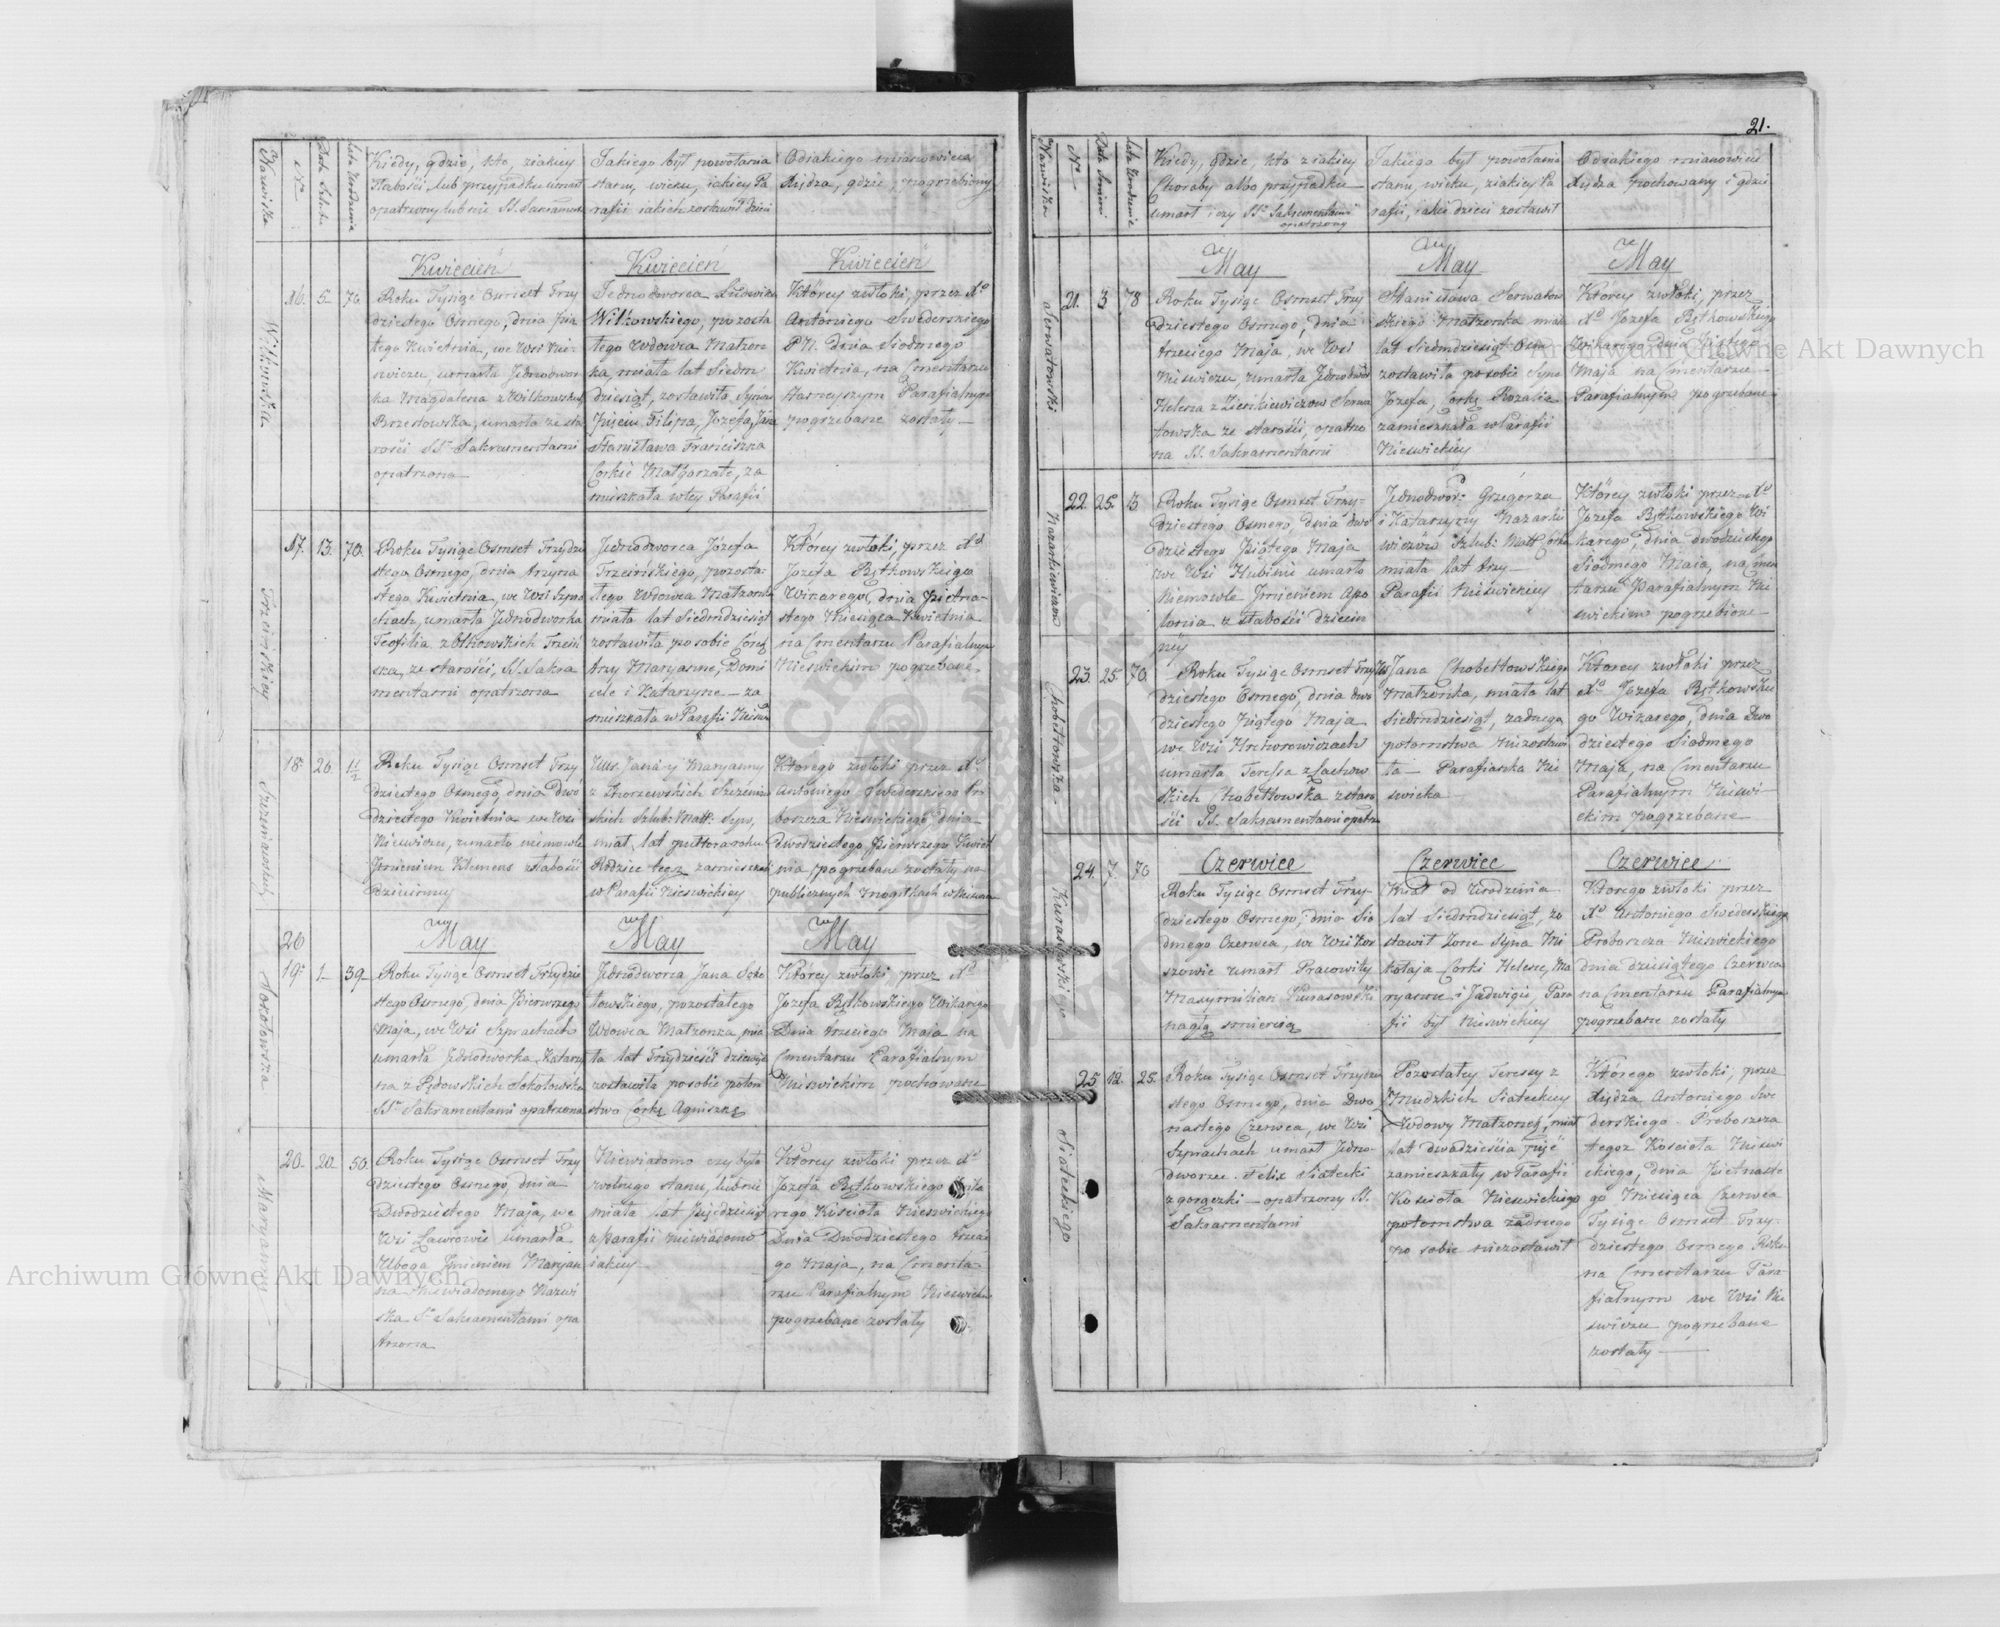 21.
Nazwiska
Nro
Lata Urodzenia
Kiedy, gdzie, kto, z iakiey
słabości, lub przypadku umarł
opatrzony lub nie SS. Sakrament
Jakiego był powołania
stanu, wieku, iakiey Pa
rafii iakich zostawił dzieci
Od iakiego mianowicie
Xiędza, gdzie, pogrzebiony
Kwiecień
Kwiecień
Kwiecień
16. 5. 70.
Roku Tysiąc Osmset Trzy
dziestego Osmego, dnia pią
tego Kwietnia, we Wsi Nie
swiczu, umarła Jednodwor
ka Magdalena z Wilkowskich
Brzestowska, umarła ze sta
rości SS. Sakramentami
opatrzona
Jednodworca Ludwika
Wilkowskiego, pozosta
łego Wdowca Małżon
ka, miała lat Siedm
dziesiąt, zostawiła Synów
Filipa, Józefa, Jana
Stanisława Franciszka
Corkie Małgorzatę, za
mieszkała w tey Parafii
Którey zwłoki, przez Xa
Antoniego Swederskiego
P.N. dnia Siodmego
Kwietnia, na Cmentarzu
Parafialnym
pogrzebane zostały
17. 13. 70.
Trzcińskiey
Roku Tysiąc Osmset Trzydzie
stego Osmego, dnia trzyna
stego Kwietnia, we Wsi Szpra
chach, umarła Jednodworka
Teofilia z Olkowskich Trzciń
ska, ze starości, SS. Sakra
mentami opatrzona
Jednodworca Józefa
Trzcińskiego, pozosta-
łego Wdowca Małżonka
miała lat Siedmdziesiąt
zostawiła po sobie Córek
trzy Maryannę, Domi
cele i Katarzynę — za
mieszkała w Parafii Niesw
Którey zwłoki, przez Xa
Jozefa Rętkowskiego
Wikarego, dnia pietna-
stego Miesiąca Kwietnia
na Cmentarzu Parafialnym
Nieswickim pogrzebane
18. 20. 1½
Roku Tysiąc Osmset Trzy
dziestego Osmego, dnia Dwó
dziestego Kwietnia we Wsi
Nieswiczu, umarło niemowle
Jmieniem Klemens z słabości
dziecinney
Jana y Maryanny
Szlub: Małż: Syn,
miał, lat puttora roku
Rodzice tego zamieszkali
w Parafii Nieswickiey
Którego zwłoki przez Xa
Antoniego Swederskiego Pro
boszcza Nieswickiego, dnia
Dwodziestego Pierwszego Kwiet
nia, pogrzebane zostały na
publicznych mogiłkach w Nieswi
May
May
May
20
19. 1. 39.
Sokołowska
Roku Tysiąc Osmset Trzydzie
stego Osmego, dnia Pierwszego
Maja, we Wsi Szprachach
umarła Jednodworka Katarzy
na z Pędowskich Sokołowska
SS. Sakramentami opatrzona
Jednodworca Jana Soko
łowskiego, pozostałego
Wdowca Małżonka, mia
ła lat Trzydzieści dziewięć
zostawiła po sobie potom
stwo Corkę Agniszkę
Którey zwłoki przez Xa
Jozefa Rętkowskiego Wikarego
Dnia trzeciego Maja na
Cmentarzu Parafialnym
Nieswickim pochowane
20. 20. 50.
Maryanny
Roku Tysiąc Osmset Trzy
dziestego Osmego, dnia
Dwodziestego Maja, we
Wsi Ławrowie umarła
Uboga Jmieniem Maryan
na Niewiadomego Nazwi
ska SS. Sakramentami opa
trzona
Niewiadomo czy była
wolnego stanu, lub nie
miała lat Pięćdziesiąt
z parafii niewiadomo
iakiey
Którey zwłoki przez Xa
Jozefa Rętkowskiego Wika
rego Kościoła Nieswickiego
Dnia Dwodziestego trzecie
go Maja, na Cmenta-
rzu Parafialnym Nieswickim
pogrzebane zostały
Nazwiska
Nro
Data Smierci
Lata Urodzenia
Kiedy, gdzie, kto z iakiey
Choroby albo przypadku
umarł i czy SS. Sakramentami
opatrzony
Jakiego był powołania
stanu, wieku, z iakiey Pa
rafii, iakie dzieci zostawił
Od iakiego mianowicie
Xiędza pochowany i gdzie
May
May
May
21. 3. 78
Roku Tysiąc Osmset Trzy
dziestego Osmego, dnia
trzeciego Maja, we Wsi
Nieswiczu, umarła Jednodwor
Helena z Zienkiewiczow Serwa
towska ze starości, opatrzo
na SS. Sakramentami
Stanisława Serwatow
skiego Małżonka miała
lat Siedmdziesiąt Osm
zostawiła po sobie Syna
Jozefa, Corkę Rozalię
zamieszkała w Parafii
Nieswickiey
Którey zwłoki, przez
Xa Jozefa Rętkowskiego
Wikarego, dnia Piątego
Maja na Cmentarzu
Parafialnym pogrzebane
22. 25. 3
Nazarkiewiczow
Roku Tysiąc Osmset Trzy-
dziestego Osmego, dnia dwo
dziestego Piątego Maja
we Wsi Hubinie umarło
Niemowle Jmieniem Apo
lonia z słabości dziecin
ney
Jednodwor: Grzegorza
i Katarzyny Nazarkie
wiczów Szlub: Małż Córka
miała lat trzy
Parafii Nieswickiey
Którey zwłoki przez Xa
Jozefa Rętkowskiego Wi
karego, dnia dwodziestego
Siodmego Maia, na Cmen
tarzu Parafialnym Nie
swickim pogrzebione
23. 25. 70.
Chobettowska
Roku Tysiąc Osmset Trzy
dziestego Osmego, dnia dwo
dziestego Piątego Maja
we Wsi Hrehorowiczach
umarła Teressa z Lachow
skich Chobettowska z staro
ści SS. Sakramentami opatrz
Jana Chobettowskiego
Małżonka, miała lat
Siedmdziesiąt, żadnego
potomstwa niezostawi
ła — Parafianka Nie
swicka
Którey zwłoki przez
Xa Jozefa Rętkowskie
go Wikarego, dnia Dwo
dziestego Siodmego
Maja, na Cmentarzu
Parafialnym Nieswi
ckim pogrzebane
24. 7. 70
Czerwiec
Czerwiec
Czerwiec
Kurasowskiego
Roku Tysiąc Osmset Trzy-
dziestego Osmego, dnia Sio
dmego Czerwca, we Wsi Kor
szowie umarł Pracowity
Maxymilian Kurasowski
nagłą smiercią
Miał od Urodzenia
lat Siedmdziesiąt, zo
stawił Żone Syna Mi
kołaja Corki Helenę, Ma
ryannę i Jadwigie, Para
fii był Nieswickiey
Którego zwłoki przez
Xa Antoniego Swederskiego
Proboszcza Nieswickiego
dnia dziesiątego Czerwca
na Cmentarzu Parafialnym
pogrzebane zostały
25 12. 25.
Siateckiego
Roku Tysiąc Osmset Trzydzie
stego Osmego, dnia Dwo
nastego Czerwca, we Wsi
Szprachach umarł Jedno-
dworzec Felix Siatecki
z gorączki — opatrzony SS.
Sakramentami
Pozostałey Teressy z
Mudzkich Siateckiey
Wdowy Małżonek, miał
lat dwadzieścia pięć
zamieszkały w Parafii
Kościoła Nieswickiego
potomstwa żadnego
po sobie niezostawił
Którego zwłoki, przez
Xiędza Antoniego Swe
derskiego Proboszcza
tegoż Kościoła Nieswi
ckiego, dnia Pietnaste
go Miesiąca Czerwca
Tysiąc Osmset Trzy-
dziestego Osmego Roku
na Cmentarzu Para
fialnym we Wsi Nie
swiczu pogrzebane
zostały
Archiwum Główne Akt Dawnych
Archiwum Główne Akt Dawnych